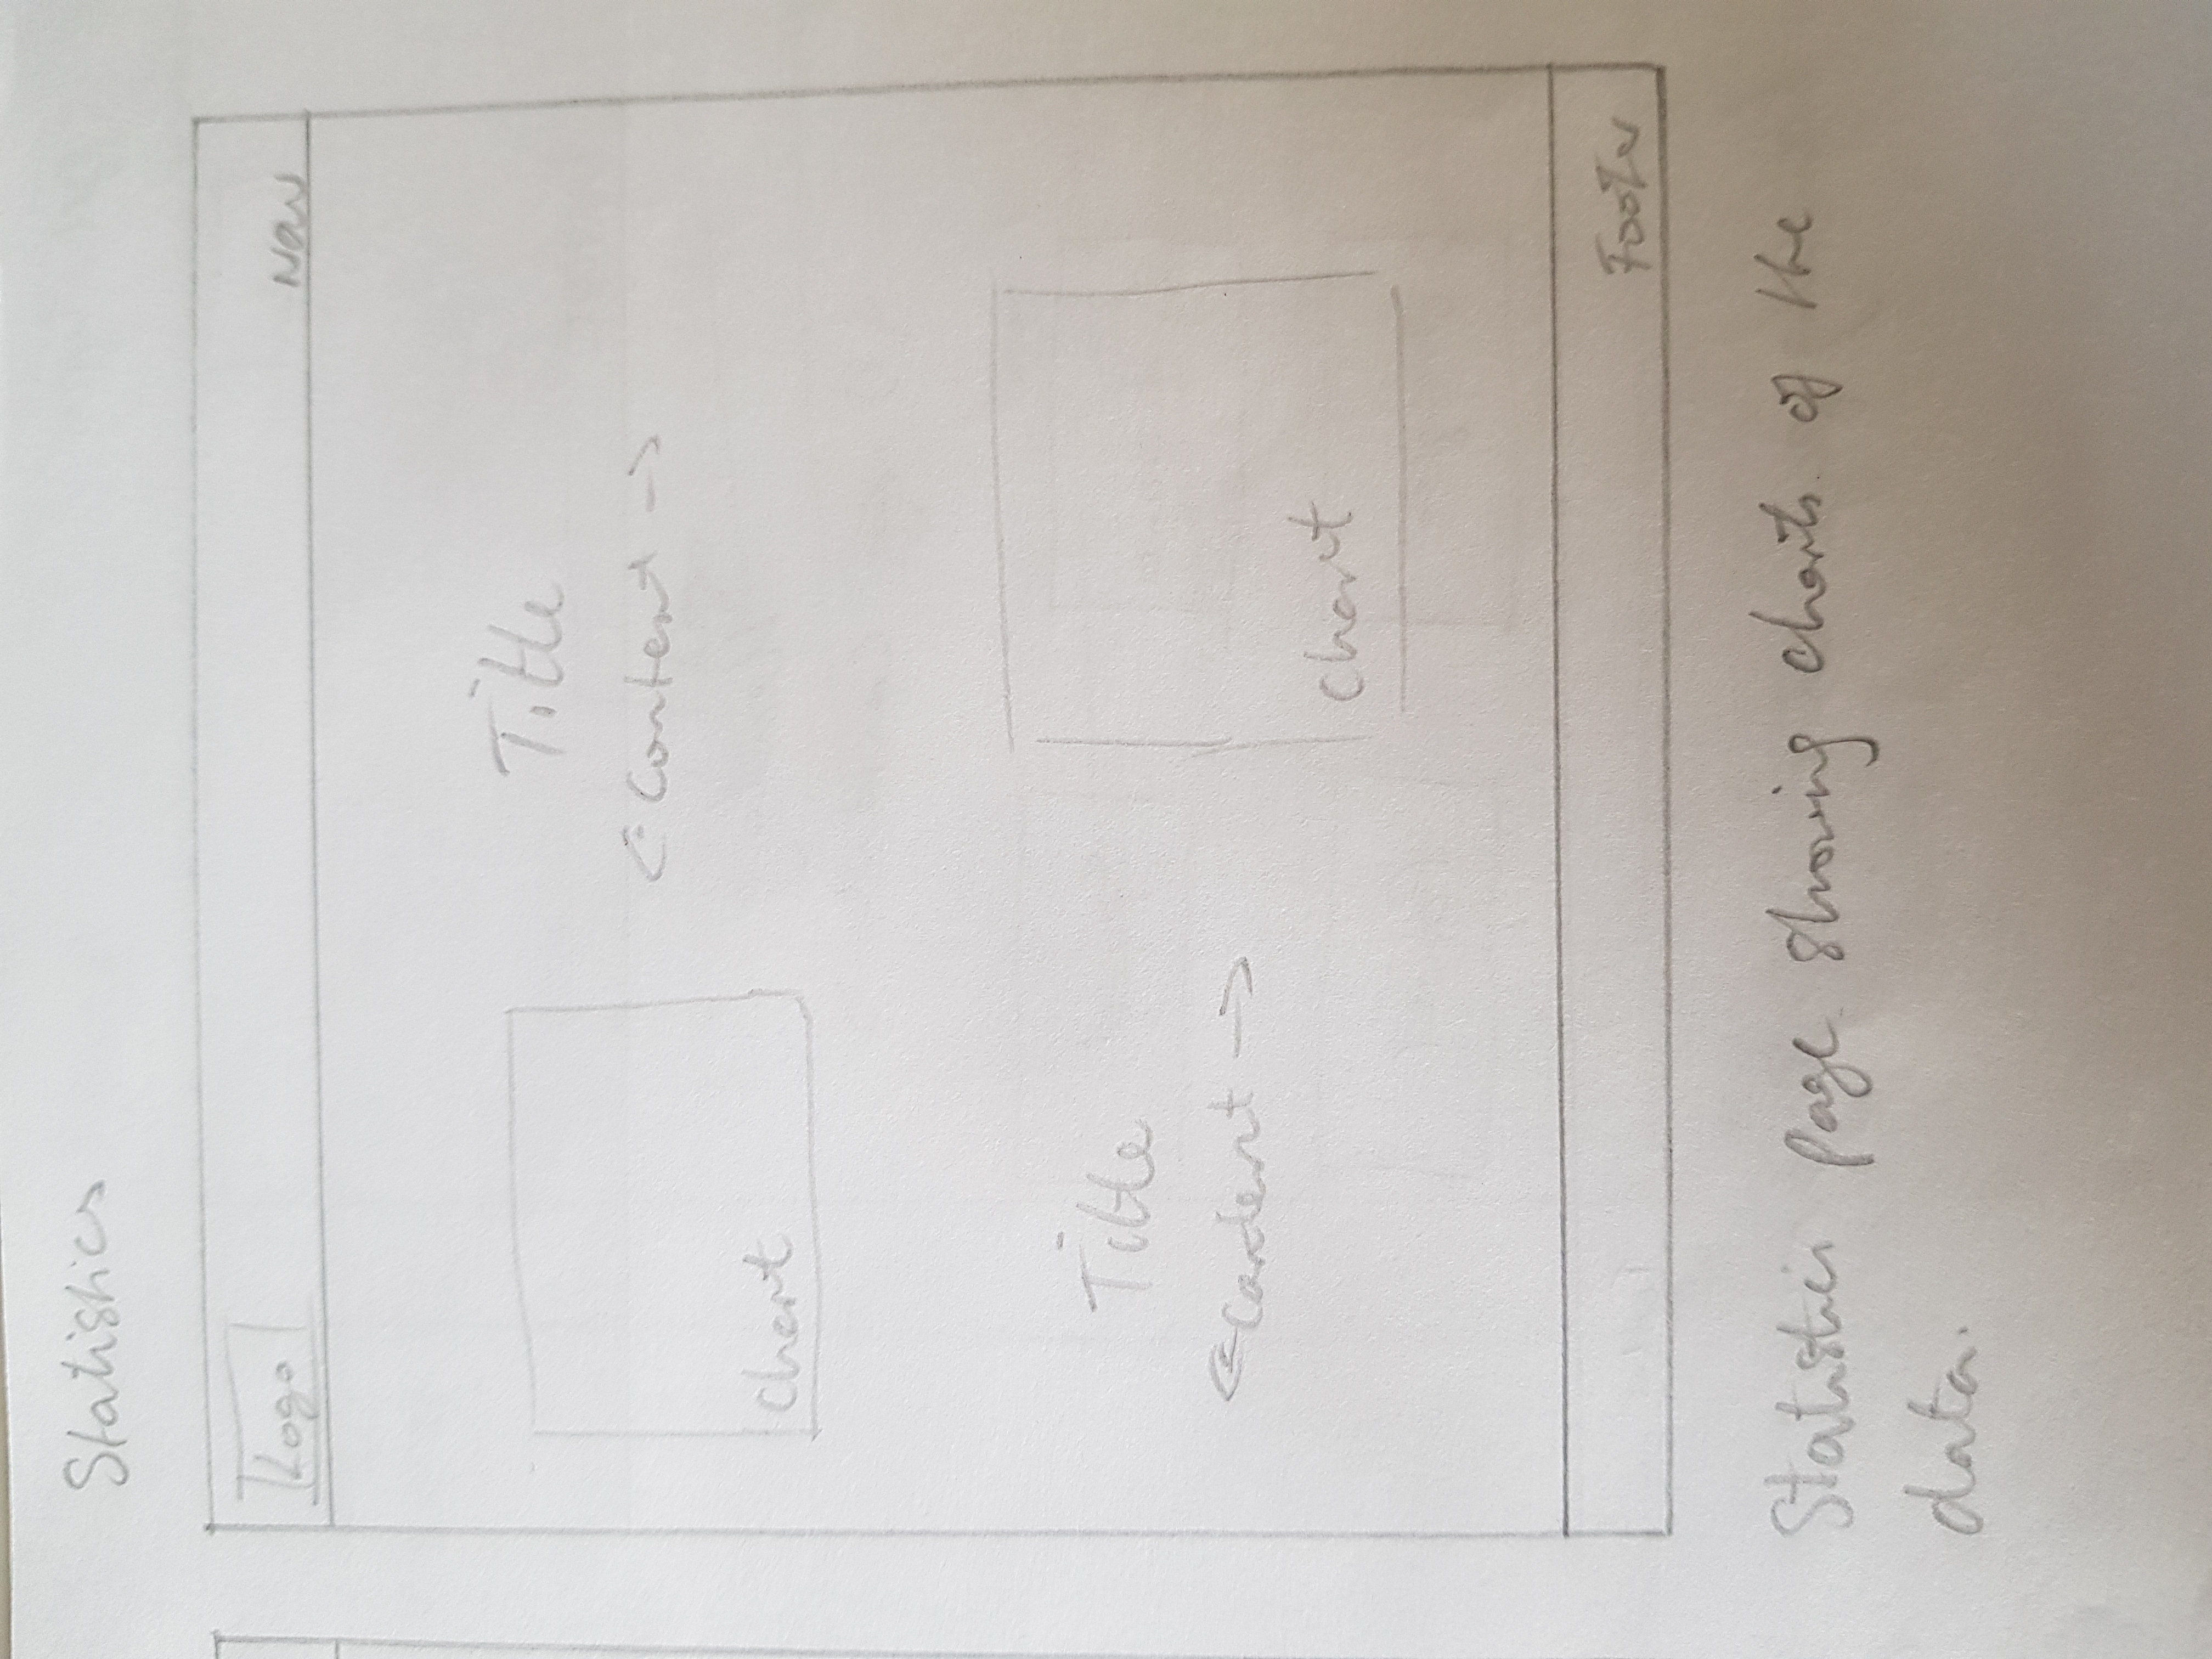 Statistics
Logo
Nav
Title
Content
Chart
Title
Content
Chart
Footer
Statistics page showing charts of the
data.